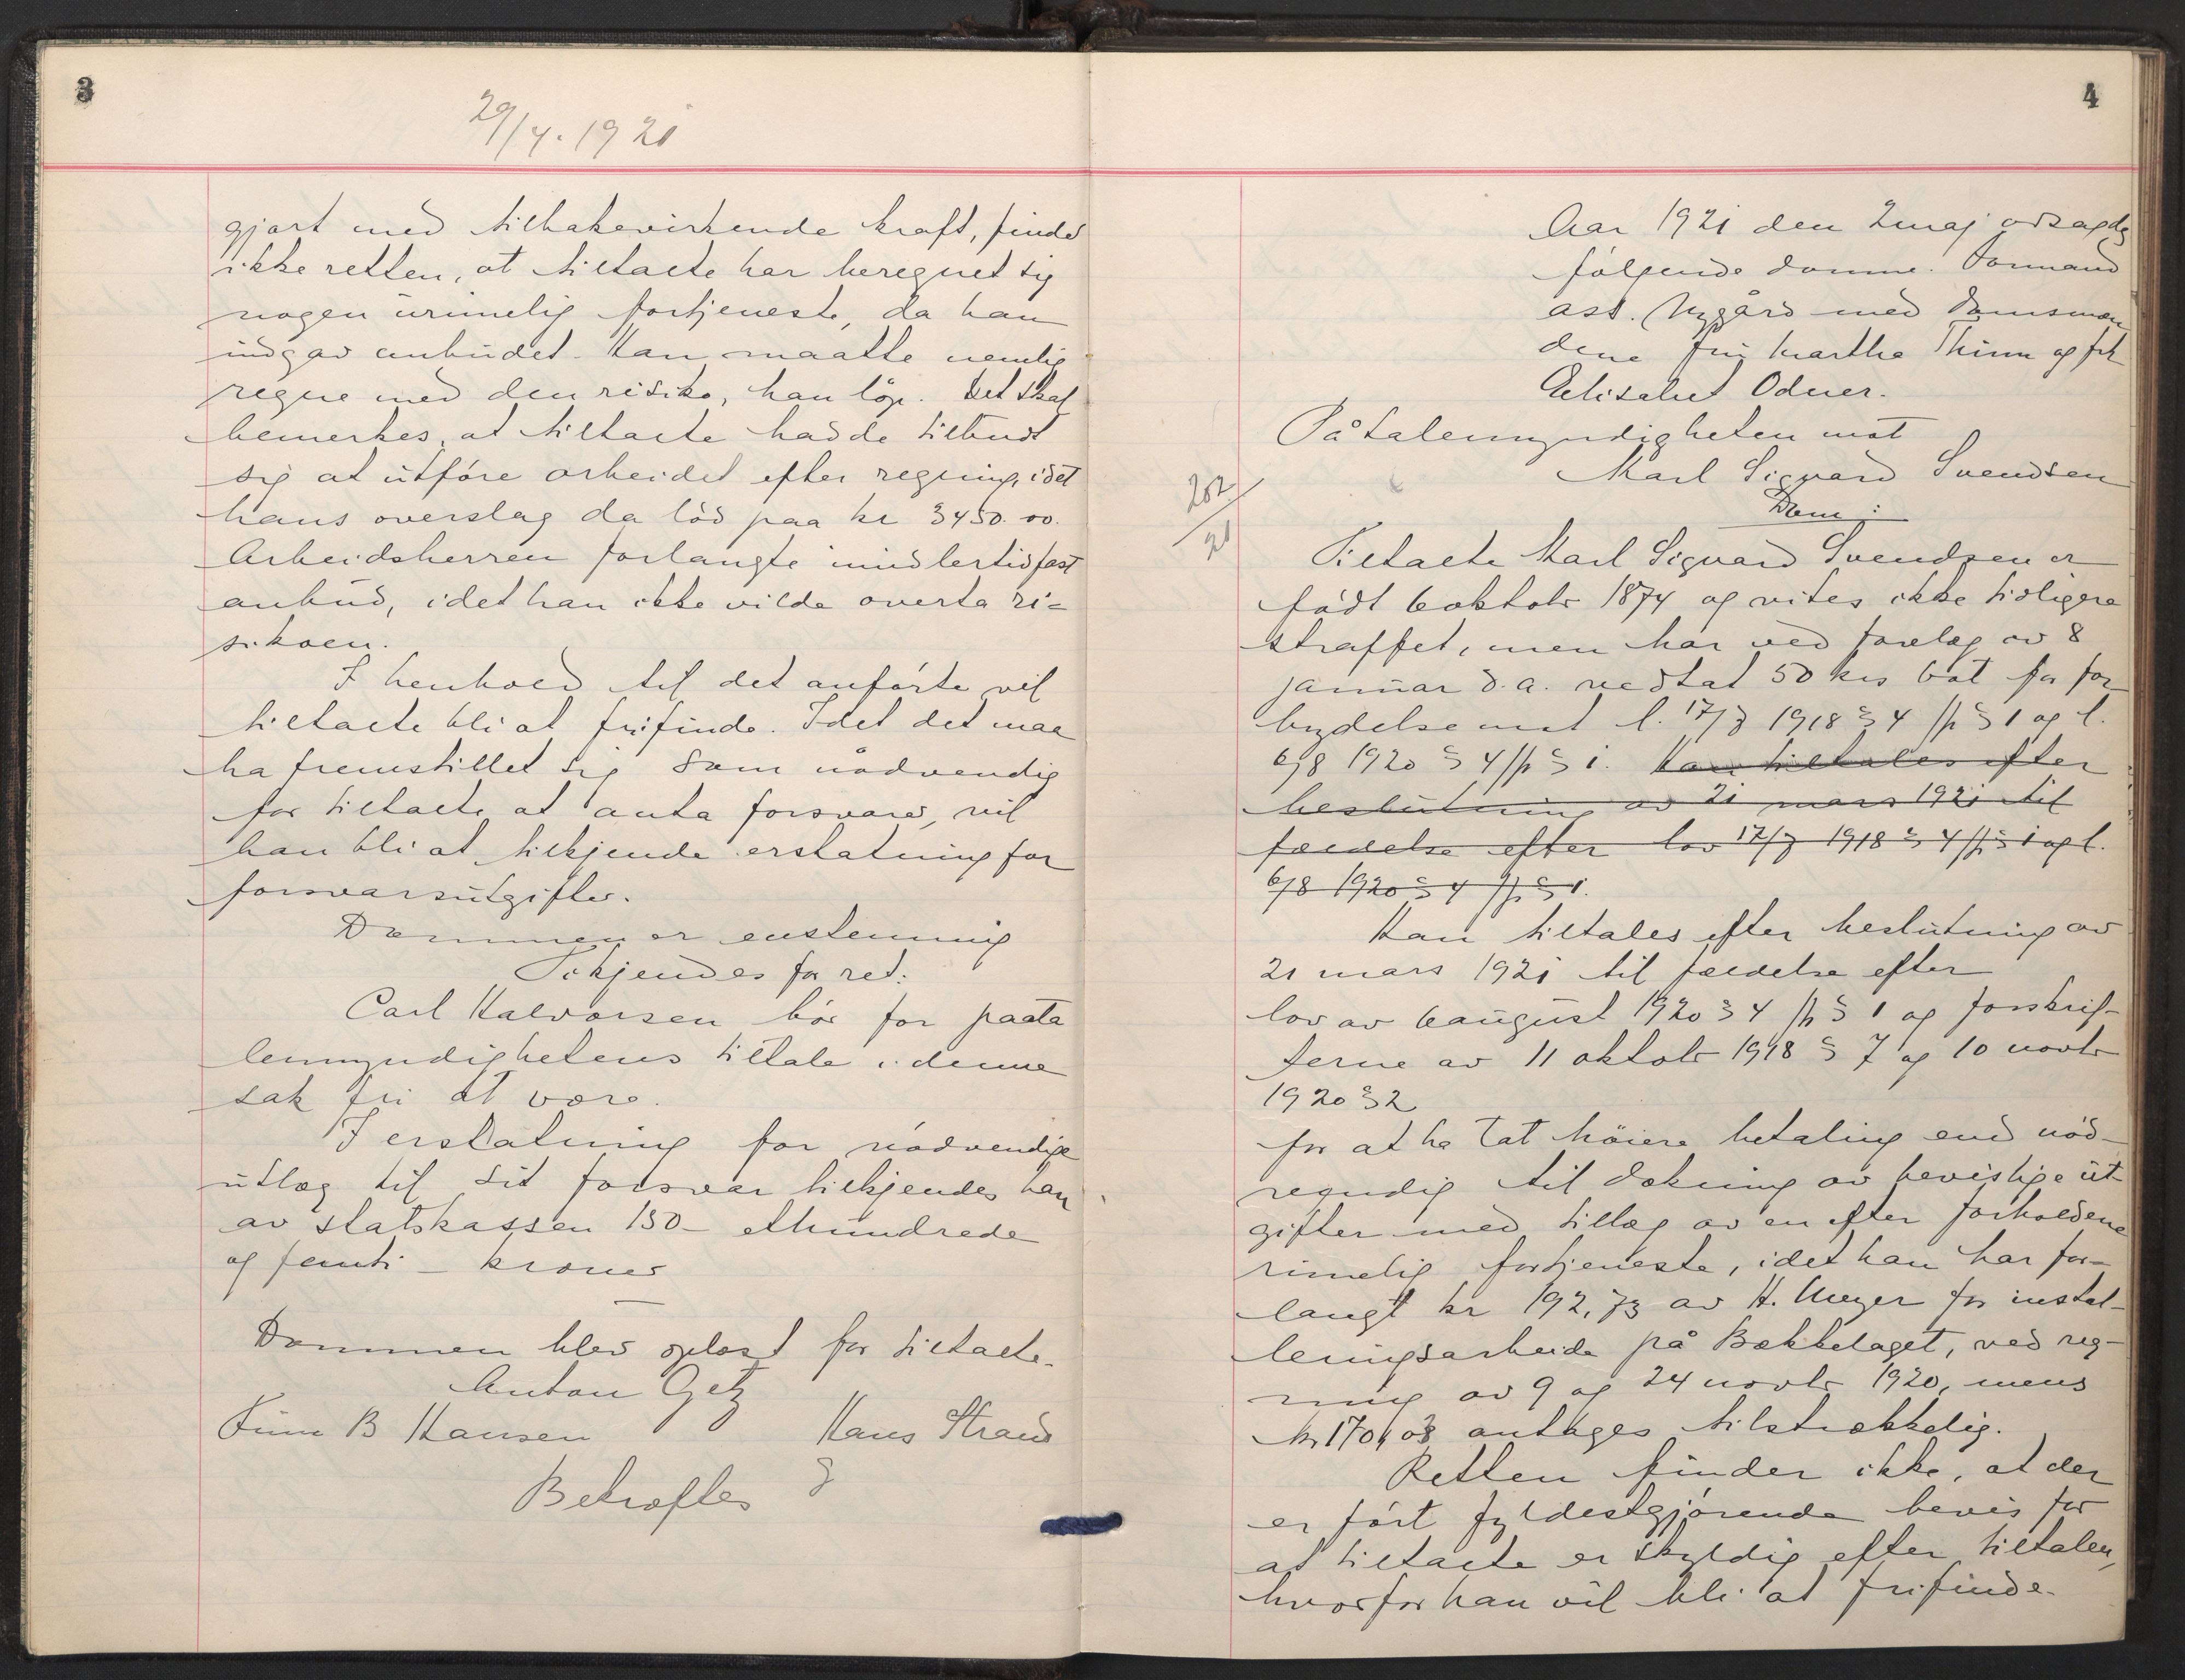 3
29/4. 1921
gjort med tilbakevirkende kraft, finder
ikke retten, at tiltalte har beregnet sig
nogen urimelig fortjeneste, da han
indgav anbudet. Han maatte nemlig
regne med den risiko, han løp. Det skal
bemerkes, at tiltalte hadde tilbudt
sig at utføre arbeidet efter regning, idet
hans overslag da lød paa kr 3450.00.
Arbeidsherren forlangte imidlertid fast
anbud, idet han ikke vilde overta ri-
sikoen.
I henhold til det anførte vil
tiltalte bli at frifinde. Idet det maa
ha fremstillet sig som nødvendig
for tiltalte at anta forsvarer, vil
han bli at tilkjende erstatning for
forsvarsutgifter.
Dommen er enstemmig
Ti kjendes for ret:
Carl Halvorsen bør for paata
lemyndighetens tiltale i denne
sak fri at være.
I erstatning for nødvendige
utlæg til sit forsvar tilkjendes han
av statskassen 150 - ethundrede
og femti - kroner
Dommen blev oplæst for tiltalte.
Anton Getz
Finn B Hansen Hans Strand
Bekræftes
4
Aar 1921 den 2 maj avsagdes
følgende domme. Formand
ass. Nygård med domsmæn
dene fru Martha Thinn og frk
Elisabet Odner.
Påtalemyndigheten mot
Karl Sigvard Svendsen
202/21
Dom:
Tiltalte Karl Sigvard Svendsen er
født 6 oktobr 1874 og vites ikke tidligere
straffet, men har ved forelæg av 8
januar d.a. vedtat 50 krs bot for for
brydelse mot l. 17/7 1918 § 4 jfr § 1 og l.
6/8 1920 § 4 jfr § 1. Han tiltales efter
beslutning av 21 mars 1921 til
fældelse efter lov 17/7 1918 § 4 jfr § 1 og l.
6/8 1920 § 4 jfr § 1.
Han tiltales efter beslutning av
21 mars 1921 til fældelse efter
lov av 6 august 1920 § 4 jfr § 1 og forskrif-
terne av 11 oktobr 1918 § 7 og 10 novbr
1920 § 2
for at ha tat høiere betaling end nød-
vendig til dækning av bevislige ut-
gifter med tillæg av en efter forholdene
rimelig fortjeneste, idet han har for-
langt kr 192,73 av H. Meyer for instal-
leringsarbeide på Bækkelaget, ved reg-
ning av 9 og 24 novbr 1920, mens
kr 170,03 antages tilstrækkelig.
Retten finder ikke, at der
er ført fyldestgjørende bevis for
at tiltalte er skyldig efter tiltalen,
hvorfor han vil bli at frifinde.